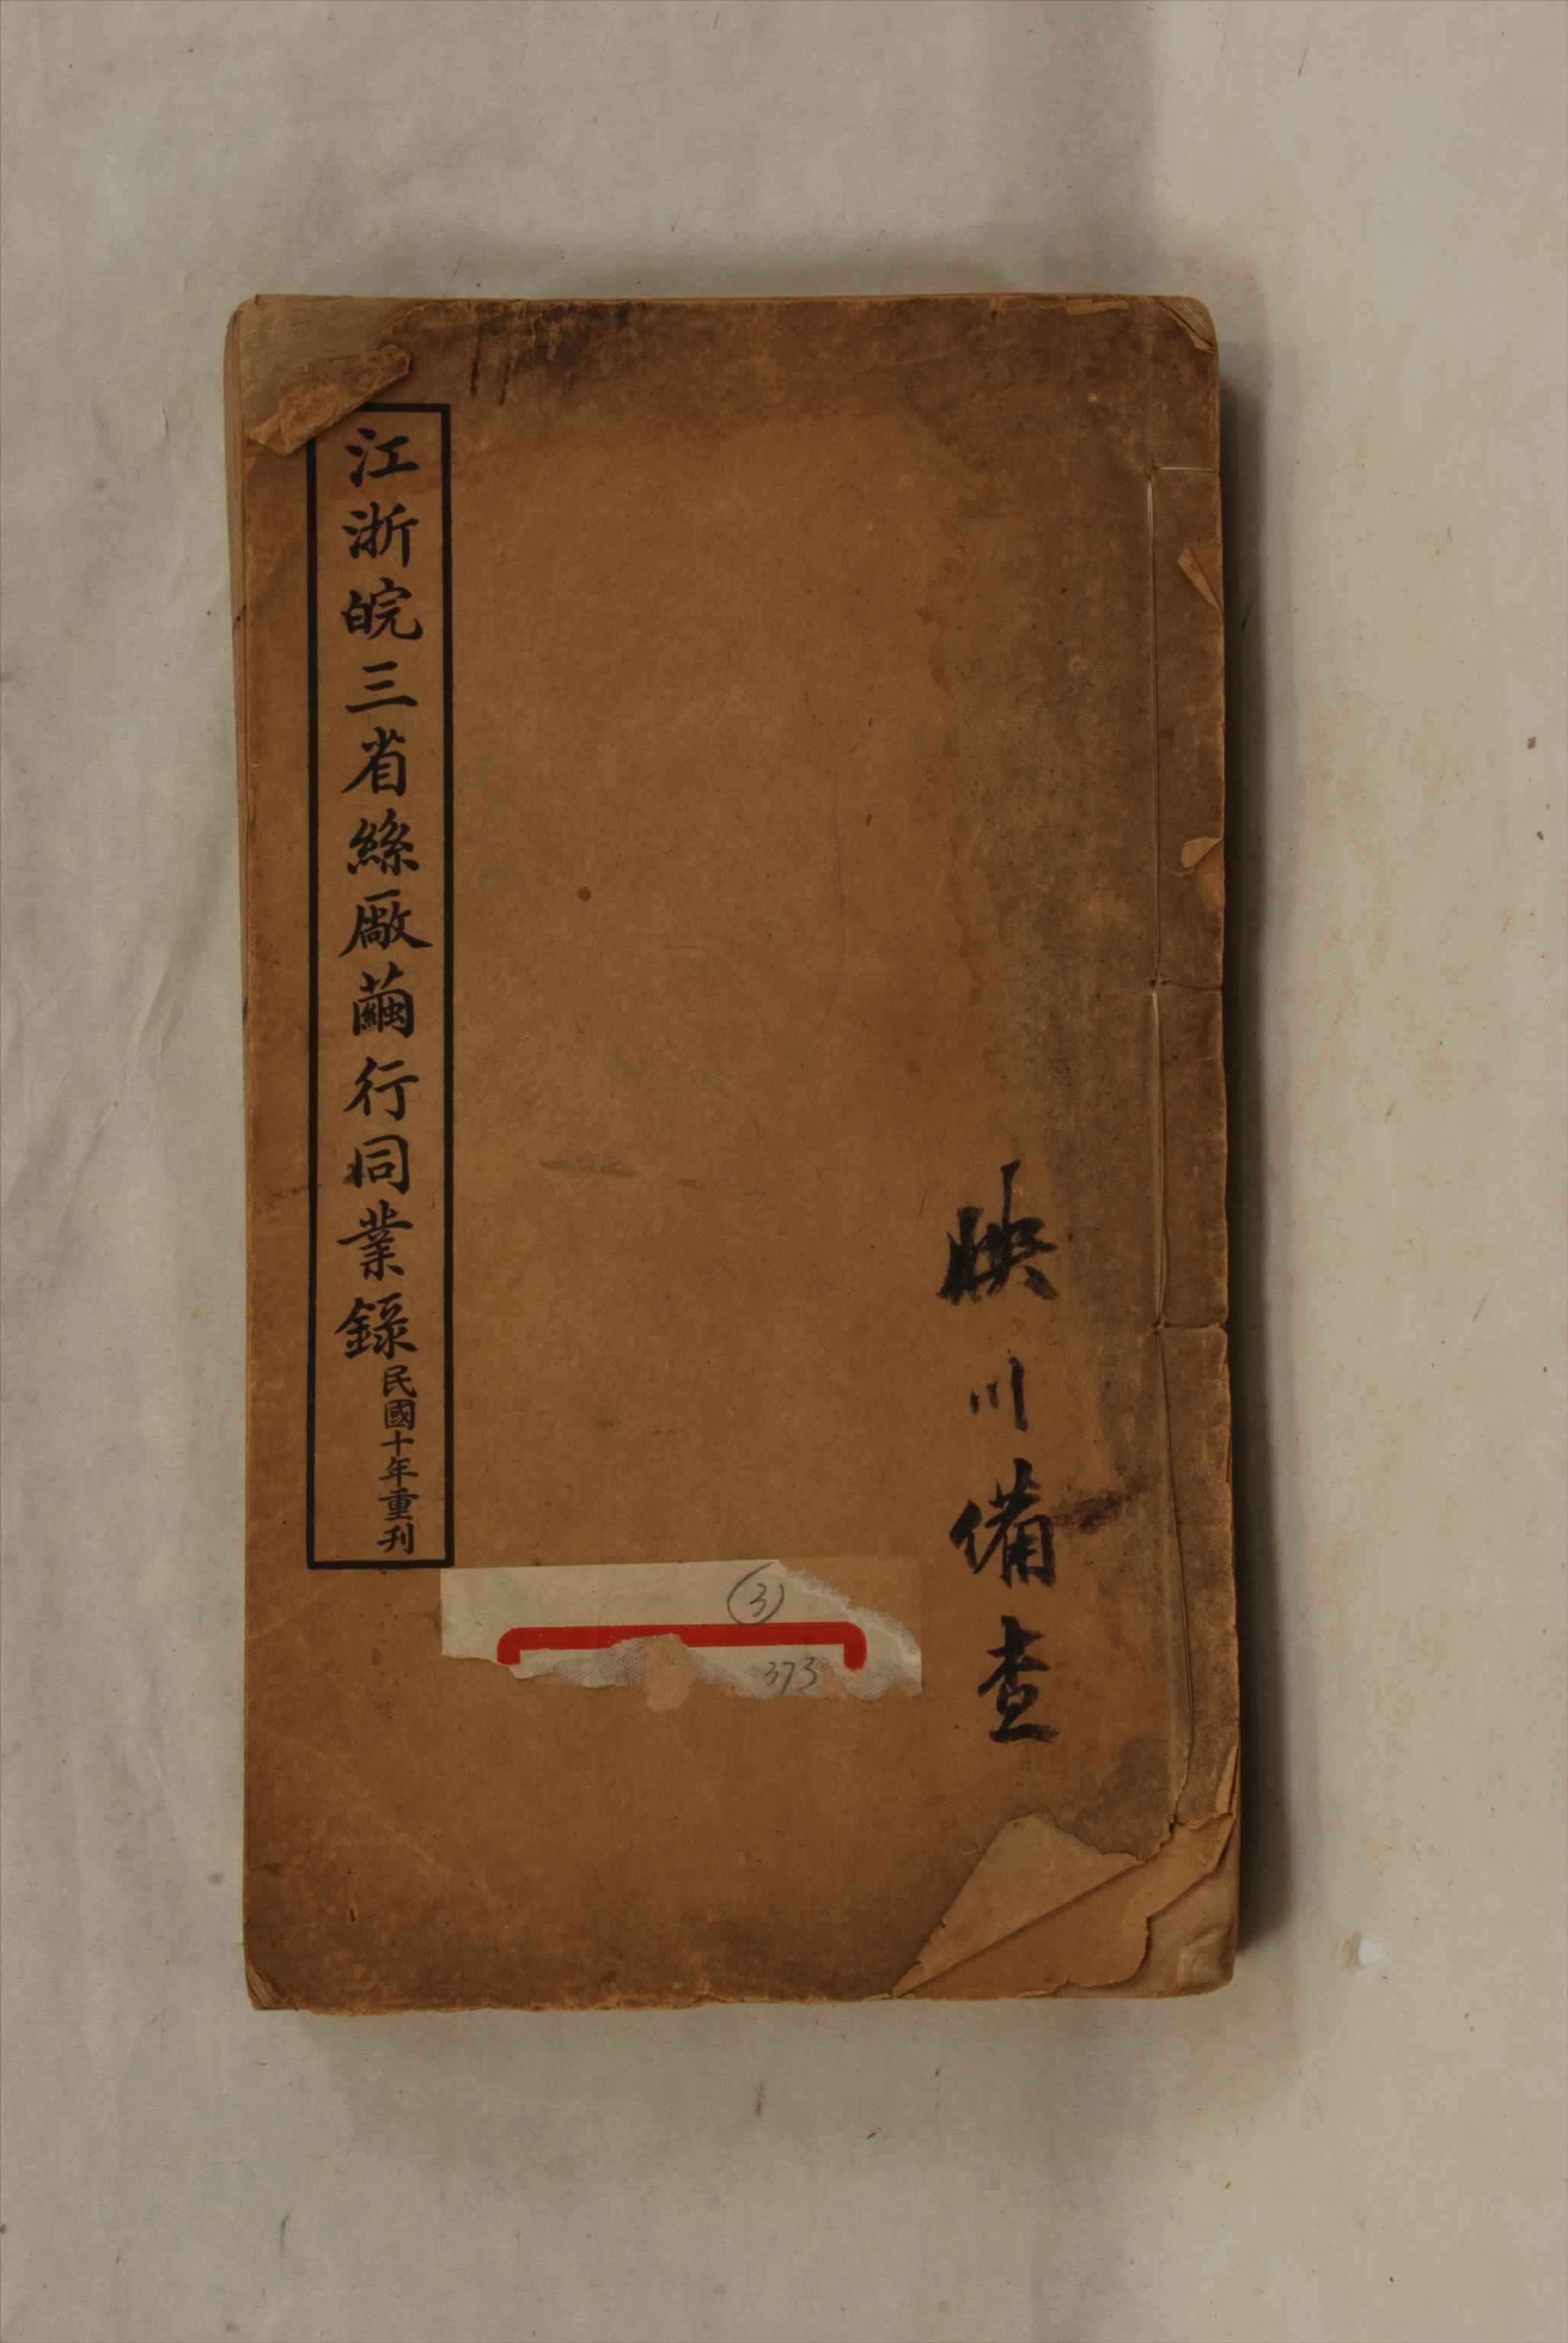 映川備查
江浙皖三省絲廠繭行同業錄
民國十年重刊
3
373